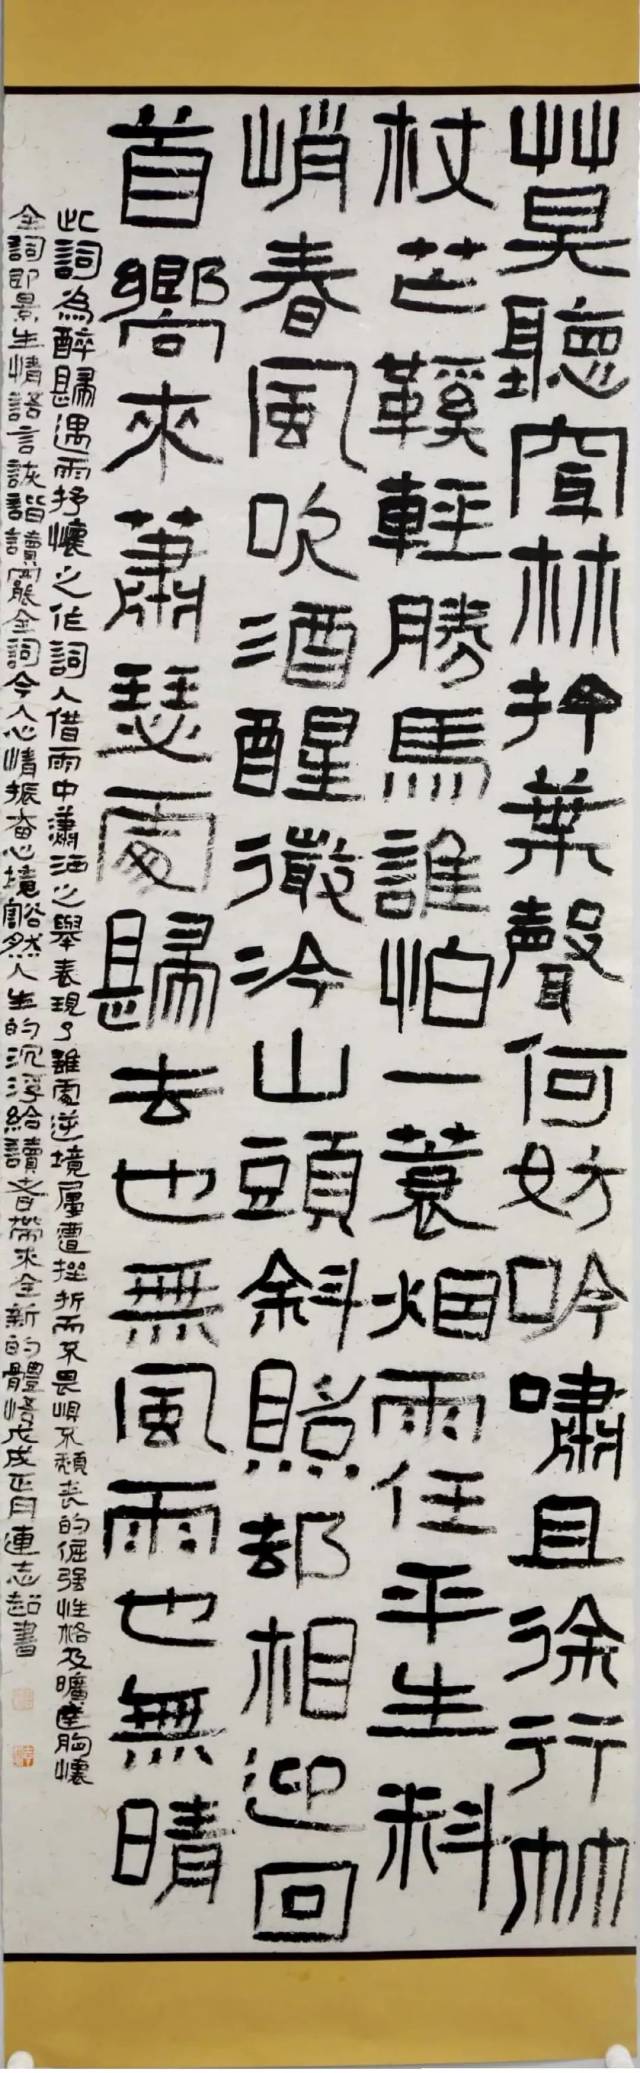 莫聽穿林打葉聲何妨吟嘯且徐行竹
杖芒鞵輕勝馬誰怕一蓑烟雨任平生料
峭春風吹酒醒微冷山頭斜照却相迎回
首嚮來蕭瑟處歸去也無風雨也無晴
此詞為醉歸遇雨抒懷之作詞人借雨中瀟洒之舉表現了雖處逆境屢遭挫折而不畏懼不頹喪的倔强性格及曠達胸懷
全詞即景生情語言詼諧讀罷全詞令人心情振奮心境豁然人生的沉浮給讀者帶來全新的體悟戊戌正月連志超書